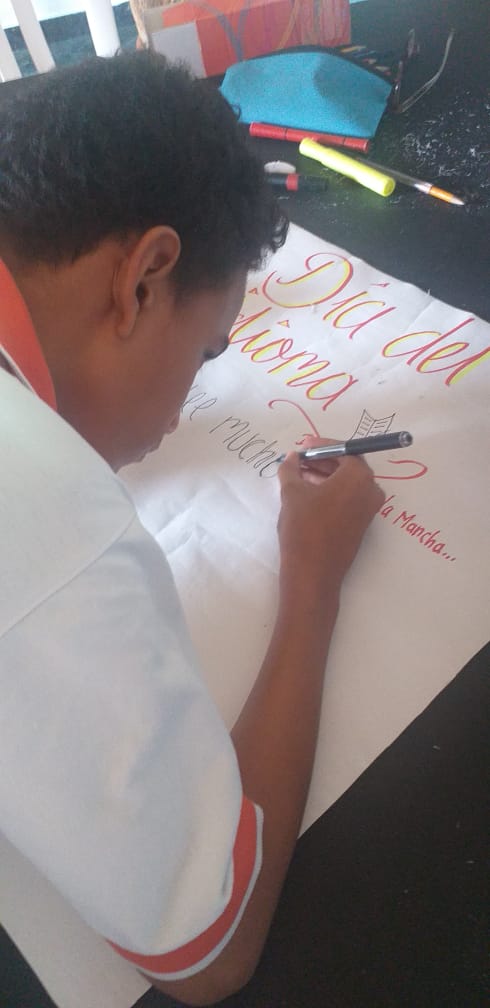 Día del
idioma
ee mucho
la Mancha...